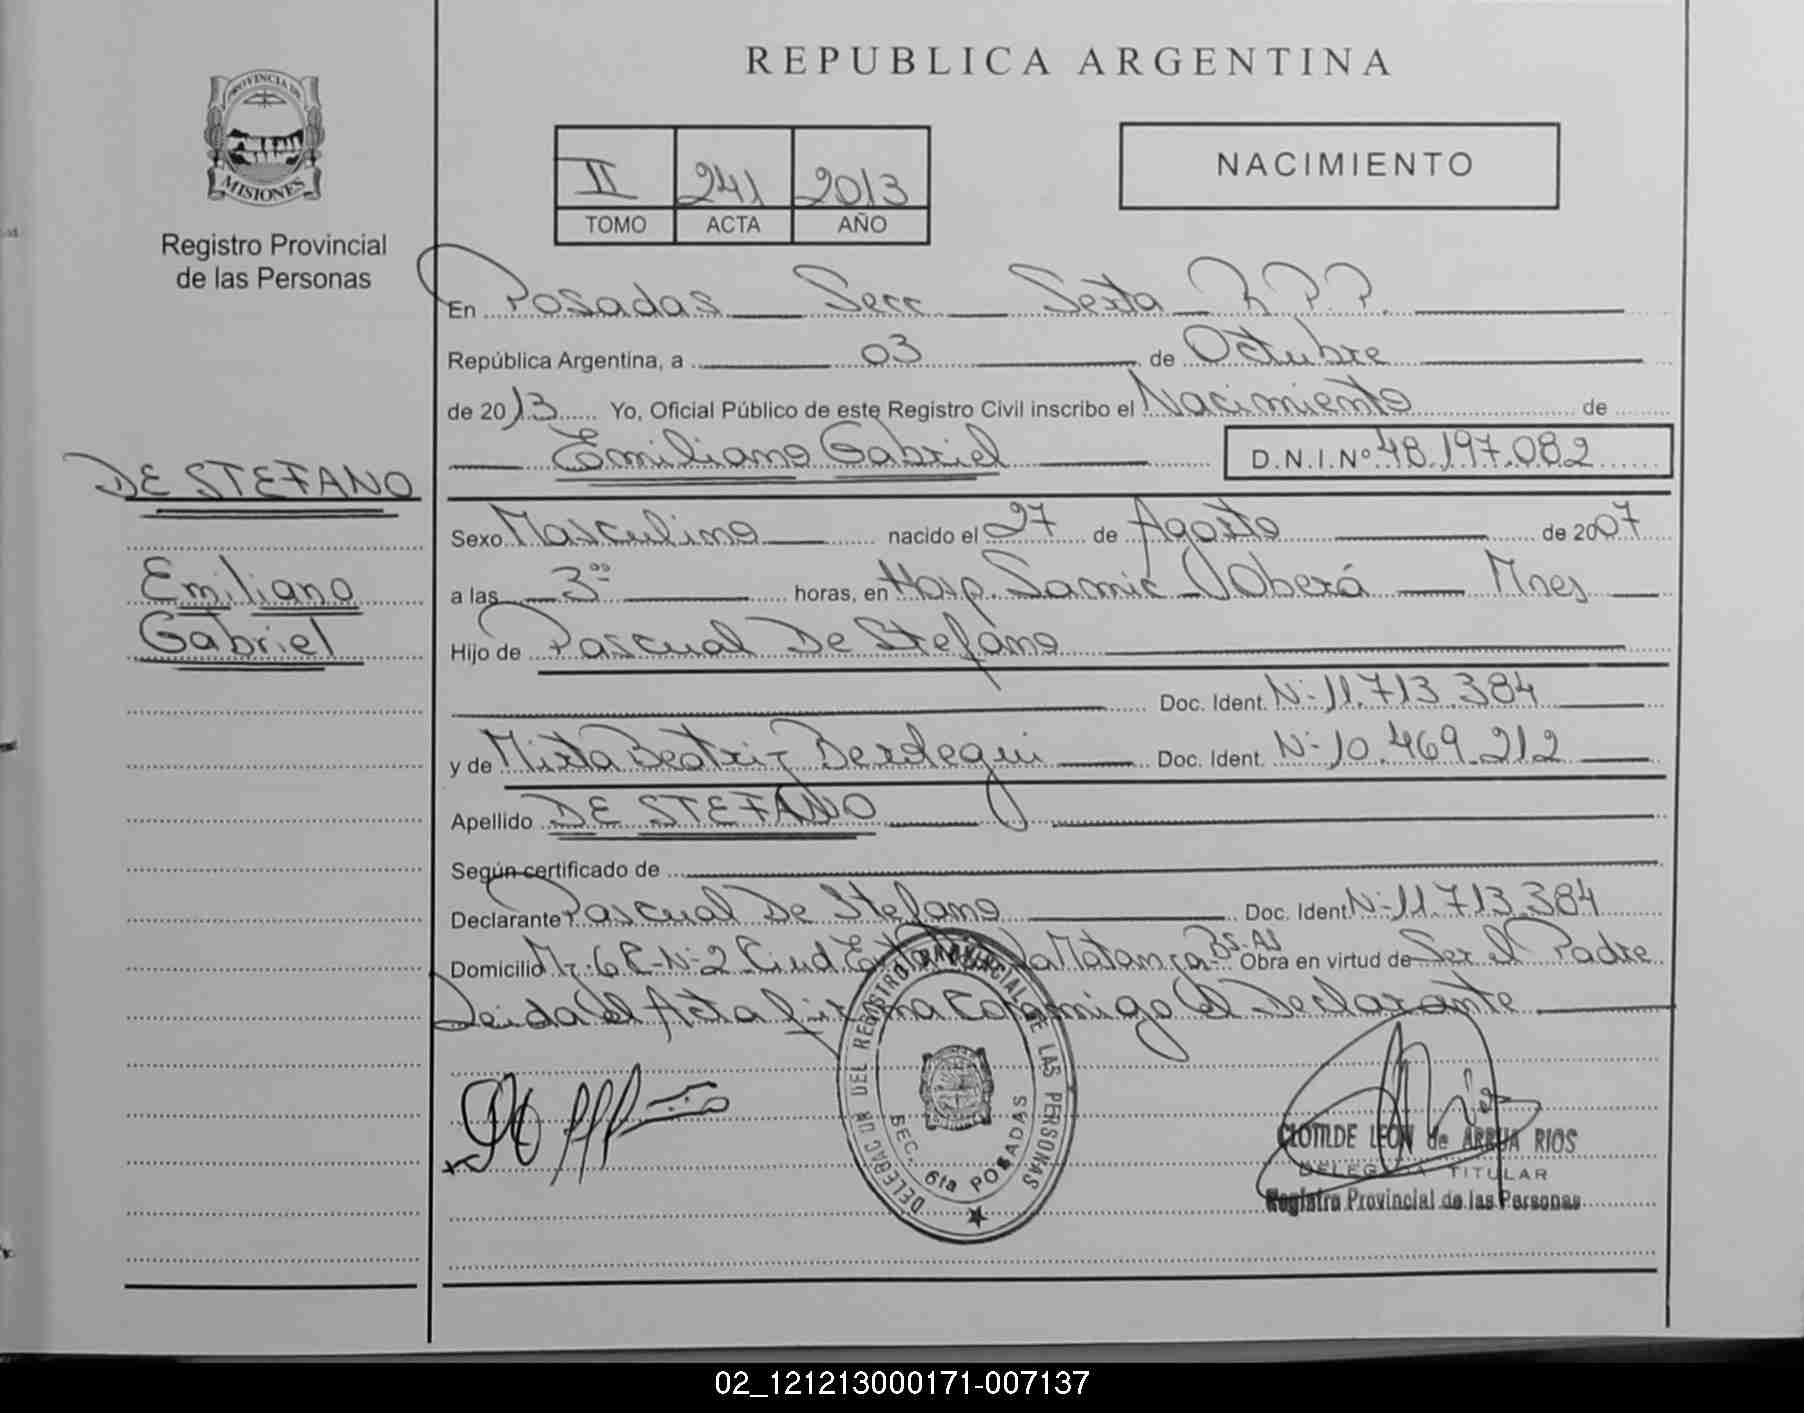 PROVINCIA DE
MISIONES
Registro Provincial
de las Personas
DE STEFANO
Emiliano
Gabriel
REPUBLICA ARGENTINA
II 241 2013
TOMO ACTA AÑO
NACIMIENTO
En Posadas Secc Sexta R.P.P.
República Argentina, a 03 de Octubre
de 2013 Yo, Oficial Público de este Registro Civil inscribo el Nacimiento de
Emiliano Gabriel D.N.I.Nº 48.197.082
Sexo Masculino nacido el 27 de Agosto de 2007
a las 3⁰⁰ horas, en Hosp. Samic Oberá Mnes
Hijo de Pascual De Stefano
Doc. Ident. Nº 11.713.384
y de Mirta Beatriz Berdegui Doc. Ident. Nº 10.469.212
Apellido DE STEFANO
Según certificado de
Declarante Pascual De Stefano Doc. Ident Nº 11.713.384
Domicilio Mz. 6 C-Nº 2 Ciud La Matanza Bs. As Obra en virtud de Ser el Padre
Leida el Acta firma Conmigo el Declarante
REGISTRO PROVINCIAL DE LAS PERSONAS
SEC. 6ta POSADAS
CLOTILDE LEON de ARRUA RIOS
DELEGADA TITULAR
Registro Provincial de las Personas
02_121213000171-007137